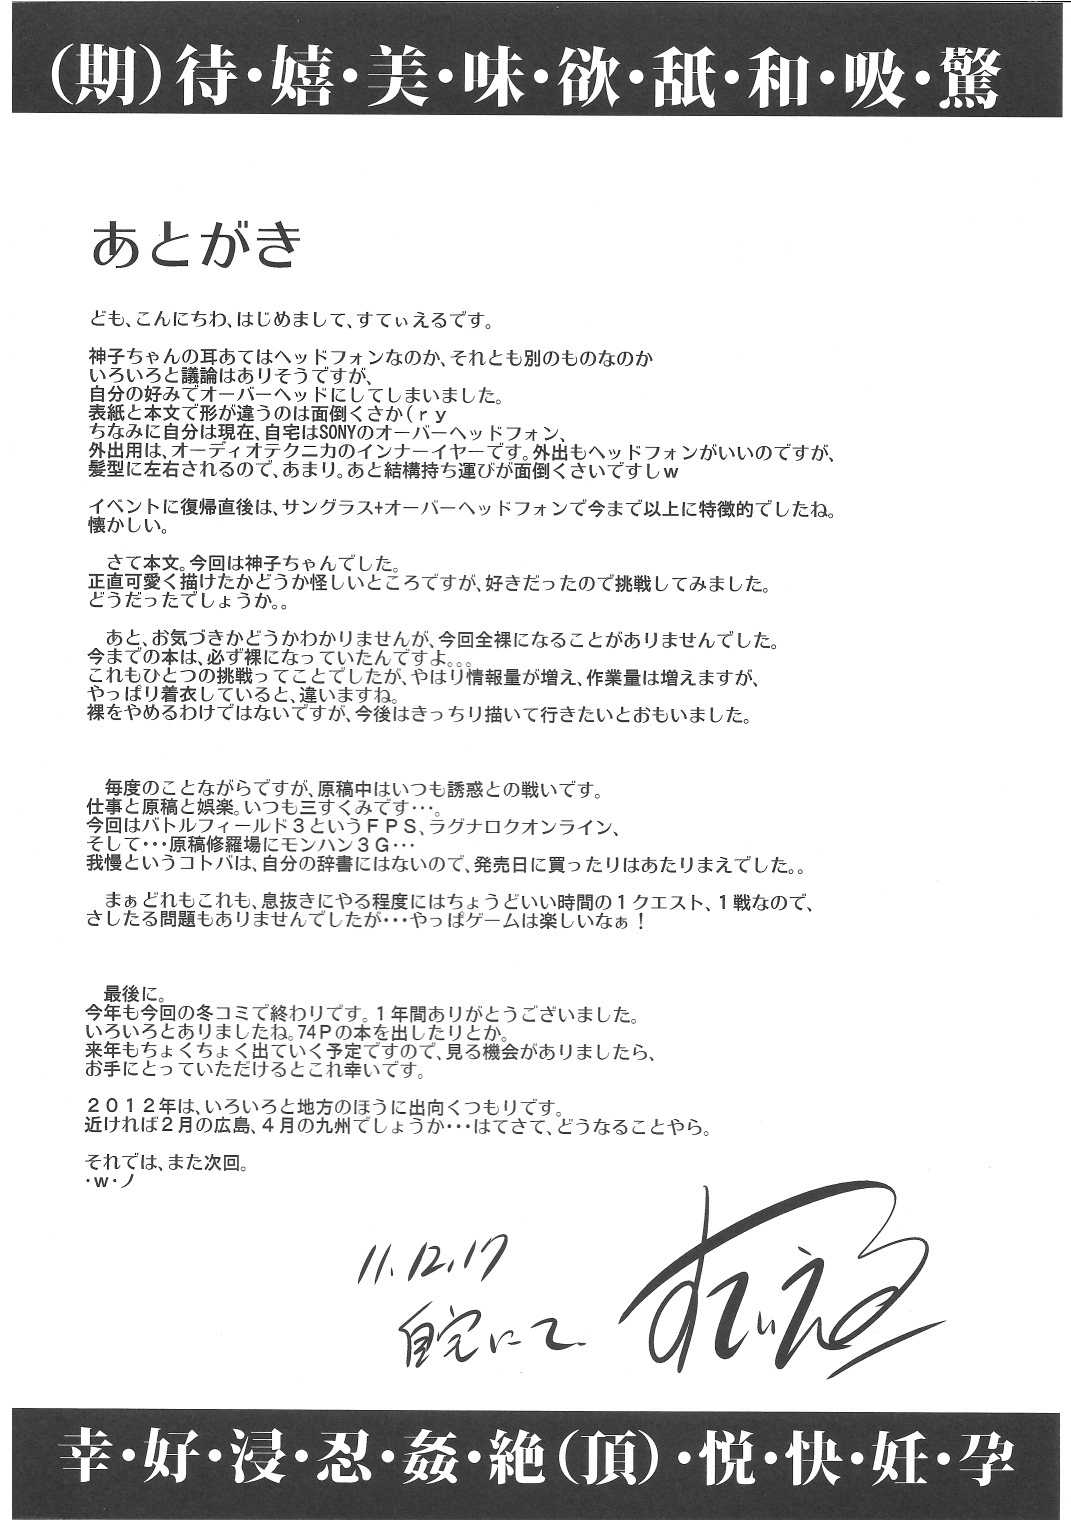 (期)待・嬉・美・味・欲・舐・和・吸・驚
あとがき
ども、こんにちわ、はじめまして、すてぃえるです。
神子ちゃんの耳あてはヘッドフォンなのか、それとも別のものなのか
いろいろと議論はありそうですが、
自分の好みでオーバーヘッドにしてしまいました。
表紙と本文で形が違うのは面倒くさか(ｒｙ
ちなみに自分は現在、自宅はSONYのオーバーヘッドフォン、
外出用は、オーディオテクニカのインナーイヤーです。外出もヘッドフォンがいいのですが、
髪型に左右されるので、あまり。あと結構持ち運びが面倒くさいですしｗ
イベントに復帰直後は、サングラス+オーバーヘッドフォンで今まで以上に特徴的でしたね。
懐かしい。
　さて本文。今回は神子ちゃんでした。
正直可愛く描けたかどうか怪しいところですが、好きだったので挑戦してみました。
どうだったでしょうか。。
　あと、お気づきかどうかわかりませんが、今回全裸になることがありませんでした。
今までの本は、必ず裸になっていたんですよ。。。
これもひとつの挑戦ってことでしたが、やはり情報量が増え、作業量は増えますが、
やっぱり着衣していると、違いますね。
裸をやめるわけではないですが、今後はきっちり描いて行きたいとおもいました。
　毎度のことながらですが、原稿中はいつも誘惑との戦いです。
仕事と原稿と娯楽。いつも三すくみです・・・。
今回はバトルフィールド３というＦＰＳ、ラグナロクオンライン、
そして・・・原稿修羅場にモンハン３Ｇ・・・
我慢というコトバは、自分の辞書にはないので、発売日に買ったりはあたりまえでした。。
　まぁどれもこれも、息抜きにやる程度にはちょうどいい時間の１クエスト、１戦なので、
さしたる問題もありませんでしたが・・・やっぱゲームは楽しいなぁ！
　最後に。
今年も今回の冬コミで終わりです。１年間ありがとうございました。
いろいろとありましたね。74Ｐの本を出したりとか。
来年もちょくちょく出ていく予定ですので、見る機会がありましたら、
お手にとっていただけるとこれ幸いです。
２０１２年は、いろいろと地方のほうに出向くつもりです。
近ければ２月の広島、４月の九州でしょうか・・・はてさて、どうなることやら。
それでは、また次回。
・ｗ・ノ
11.12.17
自宅にて. すてぃえる
幸・好・浸・忍・姦・絶(頂)・悦・快・妊・孕